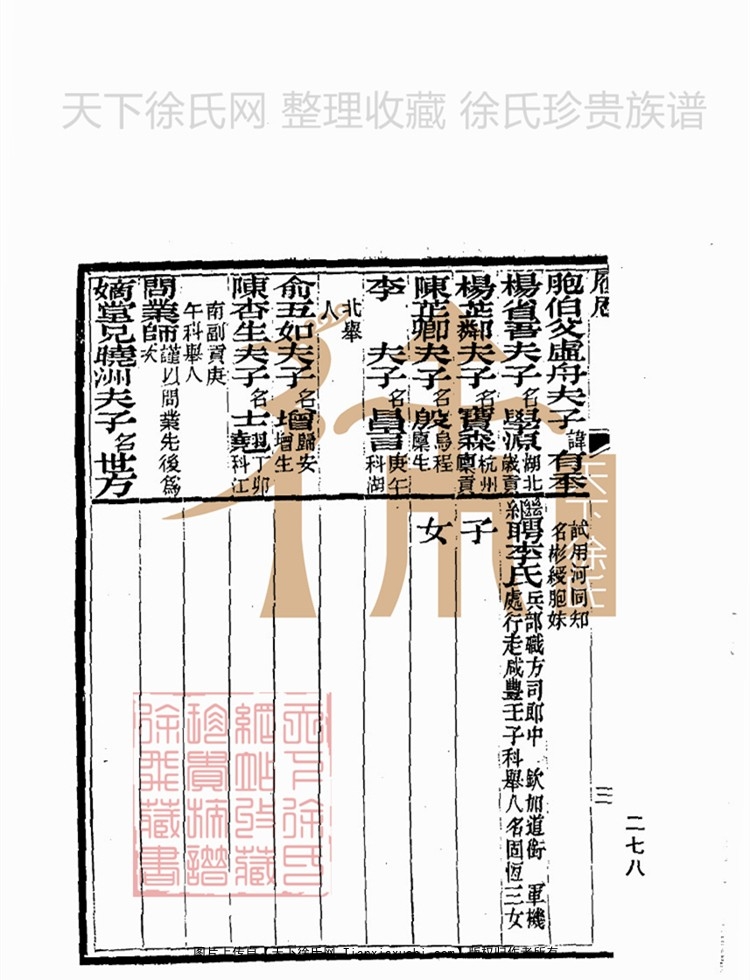 天下徐氏网 整理收藏 徐氏珍贵族谱
履历
胞伯父虛舟夫子 諱有丕
楊省吾夫子 名學源 湖北歲貢
楊芷鄰夫子 名寶森 杭州廩貢
陳芷卿夫子 名殷 烏程廩生
李 夫子 名昌言 庚午科湖
北舉人
俞五如夫子 名增 歸安增生
陳杏生夫子 名士翹 丁卯科江
南副貢庚午科舉人
問業師 謹以問業先後為次
嫡堂兄曉洲夫子 名世方
試用河同知名彬綬胞妹
繼聘李氏 兵部職方司郎中 欽加道銜 軍機處行走咸豐壬子科舉人名固恆三女
子
女
三
二七八
天下徐氏
天下徐氏網站收藏珍貴族譜徐飛藏書
图片上传自【天下徐氏网 Tianxiaxushi.com】版权归作者所有